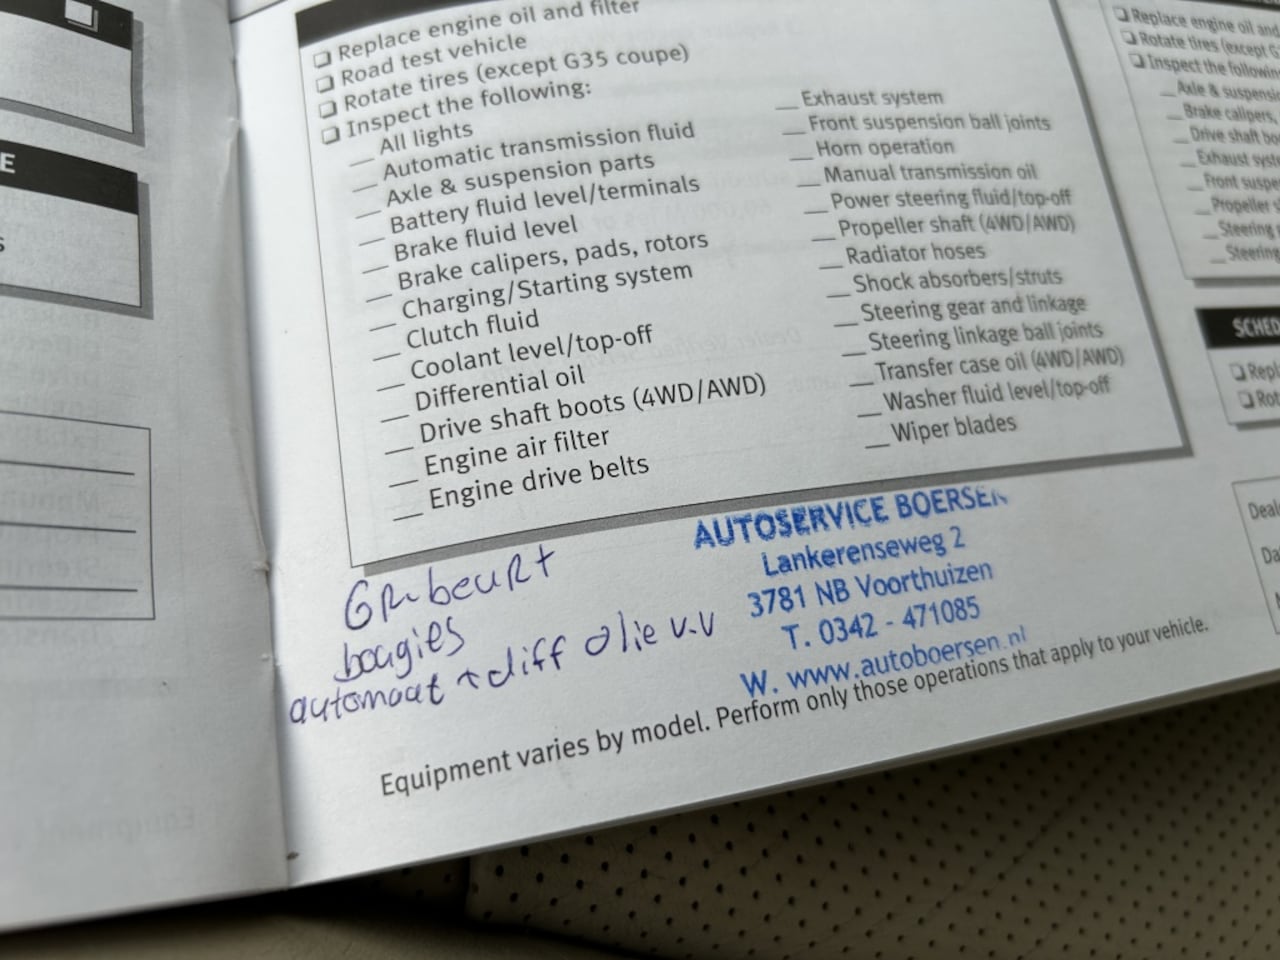 E
s
❏ Replace engine oil and filter
❏ Road test vehicle
❏ Rotate tires (except G35 coupe)
❏ Inspect the following:
__ All lights
__ Automatic transmission fluid
__ Axle & suspension parts
__ Battery fluid level/terminals
__ Brake fluid level
__ Brake calipers, pads, rotors
__ Charging/Starting system
__ Clutch fluid
__ Coolant level/top-off
__ Differential oil
__ Drive shaft boots (4WD/AWD)
__ Engine air filter
__ Engine drive belts
__ Exhaust system
__ Front suspension ball joints
__ Horn operation
__ Manual transmission oil
__ Power steering fluid/top-off
__ Propeller shaft (4WD/AWD)
__ Radiator hoses
__ Shock absorbers/struts
__ Steering gear and linkage
__ Steering linkage ball joints
__ Transfer case oil (4WD/AWD)
__ Washer fluid level/top-off
__ Wiper blades
beurt
bougies
automaat + diff olie v.v
AUTOSERVICE BOERSEN
Lankerenseweg 2
3781 NB Voorthuizen
T. 0342 - 471085
W. www.autoboersen.nl
Equipment varies by model. Perform only those operations that apply to your vehicle.
❏ Replace engine oil and
❏ Rotate tires (except G
❏ Inspect the followin
__ Axle & suspensi
__ Brake calipers,
__ Drive shaft bo
__ Exhaust syst
__ Front suspe
__ Propeller s
__ Steering
__ Steering
SCHED
❏ Repl
❏ Rot
Deal
Da